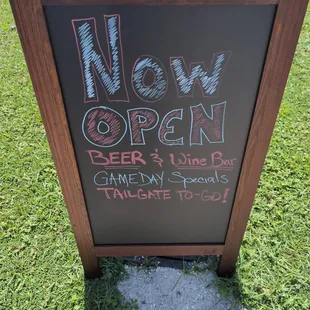 Now
OPEN
BEER & Wine Bar
GAMEDAY Specials
TAILGATE TO-GO!